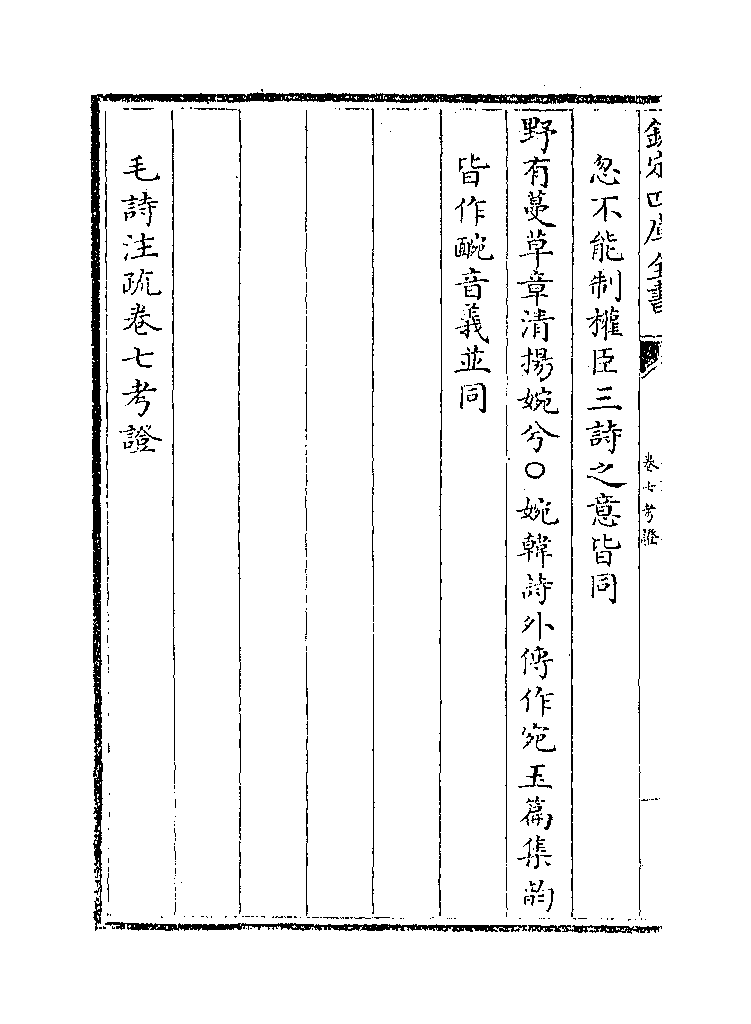 欽定四庫全書
卷七考證
忽不能制權臣三詩之意皆同
野有蔓草章清揚婉兮○婉韓詩外傳作宛玉篇集韵
皆作䩊音義並同
毛詩注疏卷七考證